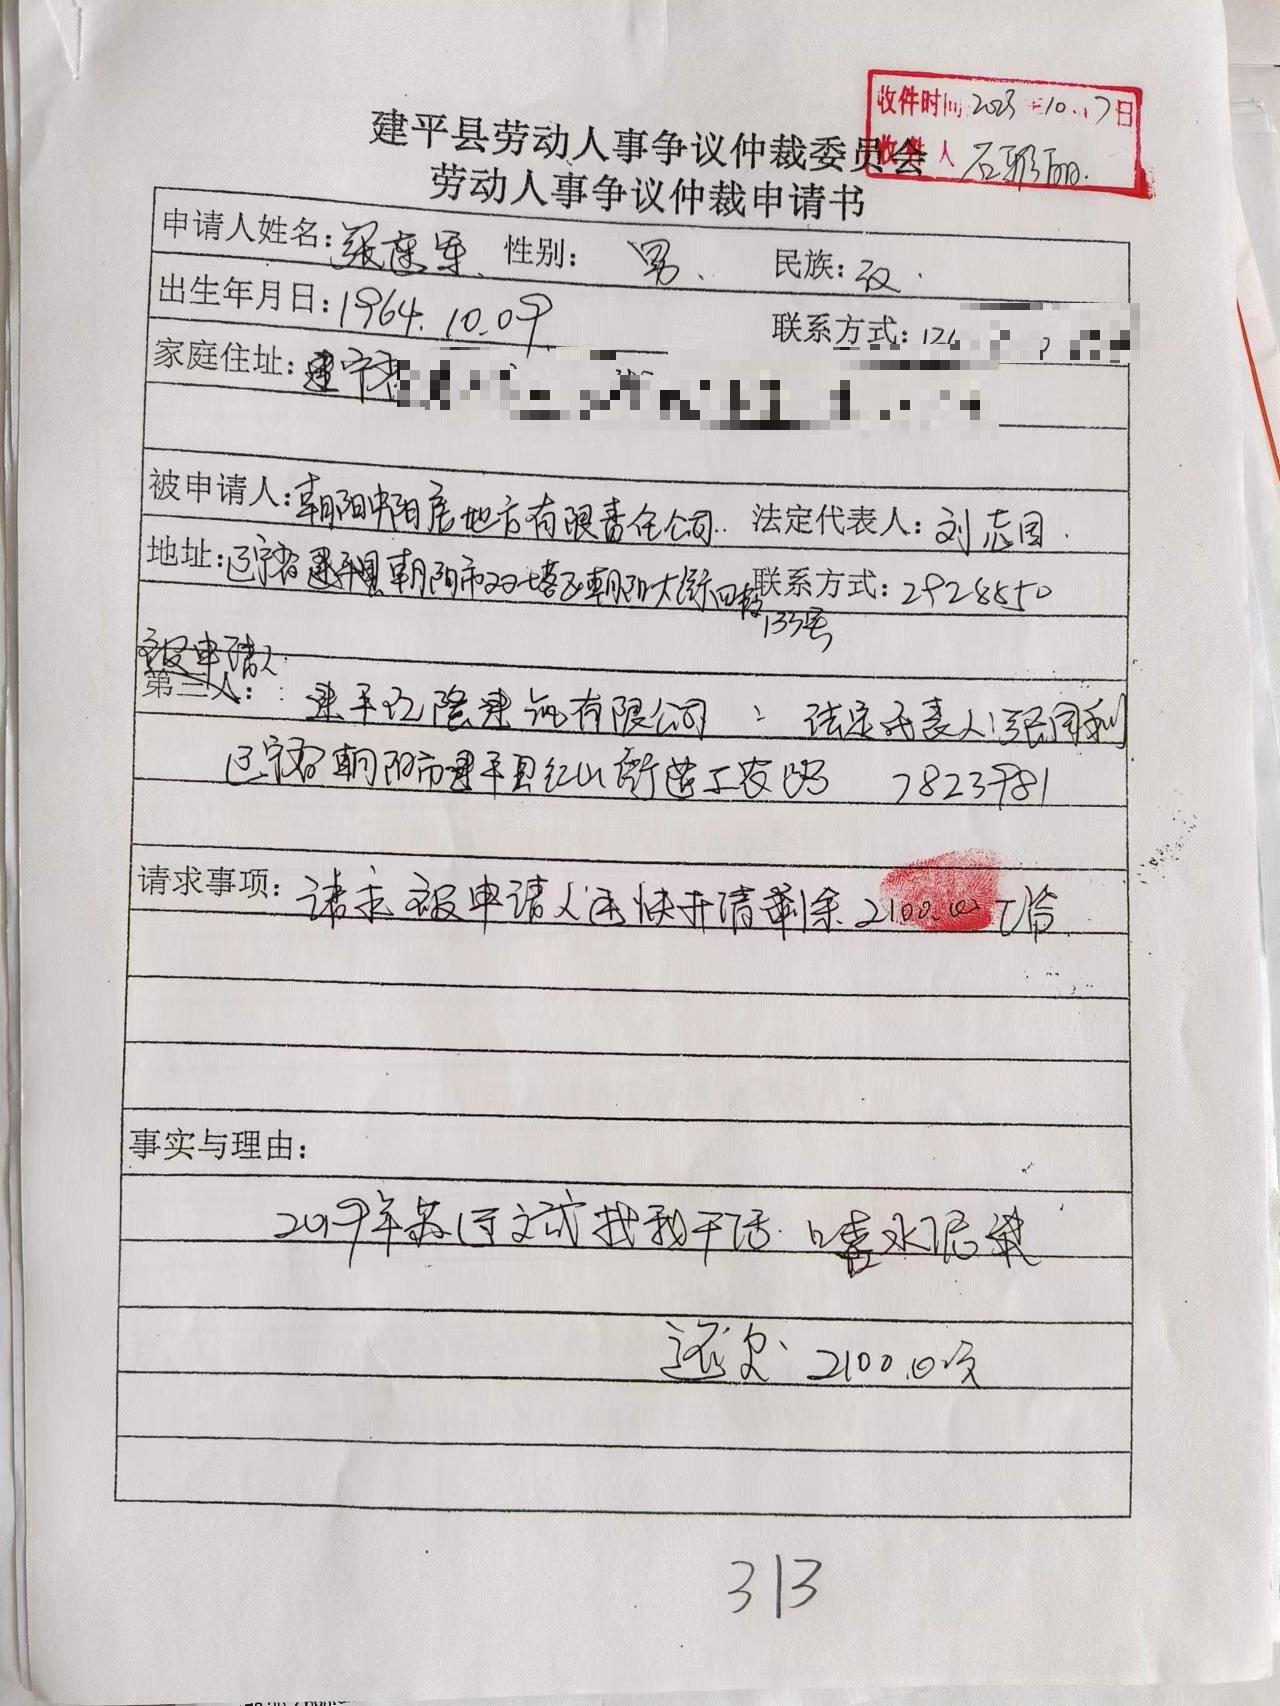 收件时间 2023年10月17日
建平县劳动人事争议仲裁委员会
收件人
劳动人事争议仲裁申请书
申请人姓名: 性别: 男 民族: 汉
出生年月日: 1964.10.09 联系方式:
家庭住址:
被申请人: 朝阳中阳房地方有限责任公司 法定代表人: 刘志国
地址: 辽宁省建平县朝阳市双塔区朝阳大街四段 联系方式: 2928850
133号
被申请人
第三人: 建平红隆建筑有限公司: 法定代表人: 张国利
辽宁省朝阳市建平县红山街道工农路 7823981
请求事项: 请求被申请人尽快开清剩余 2100.00
事实与理由:
2019年 找我干活. 喷水泥浆
还欠 2100.00元
313